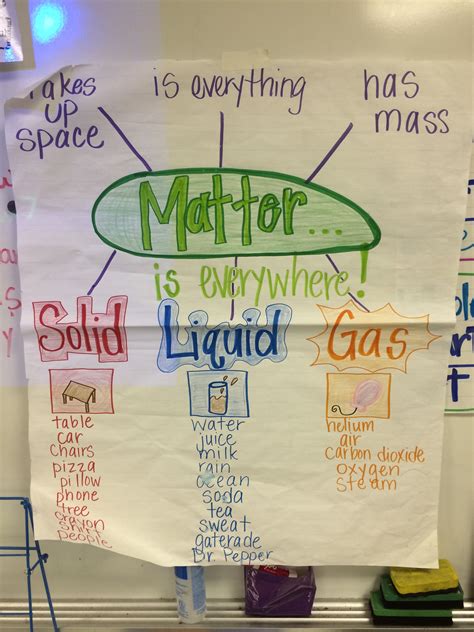 takes
up
space
is everything
has
mass
Matter...
is everywhere!
Solid
Liquid
Gas
table
car
chairs
pizza
pillow
phone
tree
crayon
shirt
people
water
juice
milk
rain
ocean
soda
tea
sweat
gaterade
Dr. Pepper
helium
air
carbon dioxide
oxygen
steam